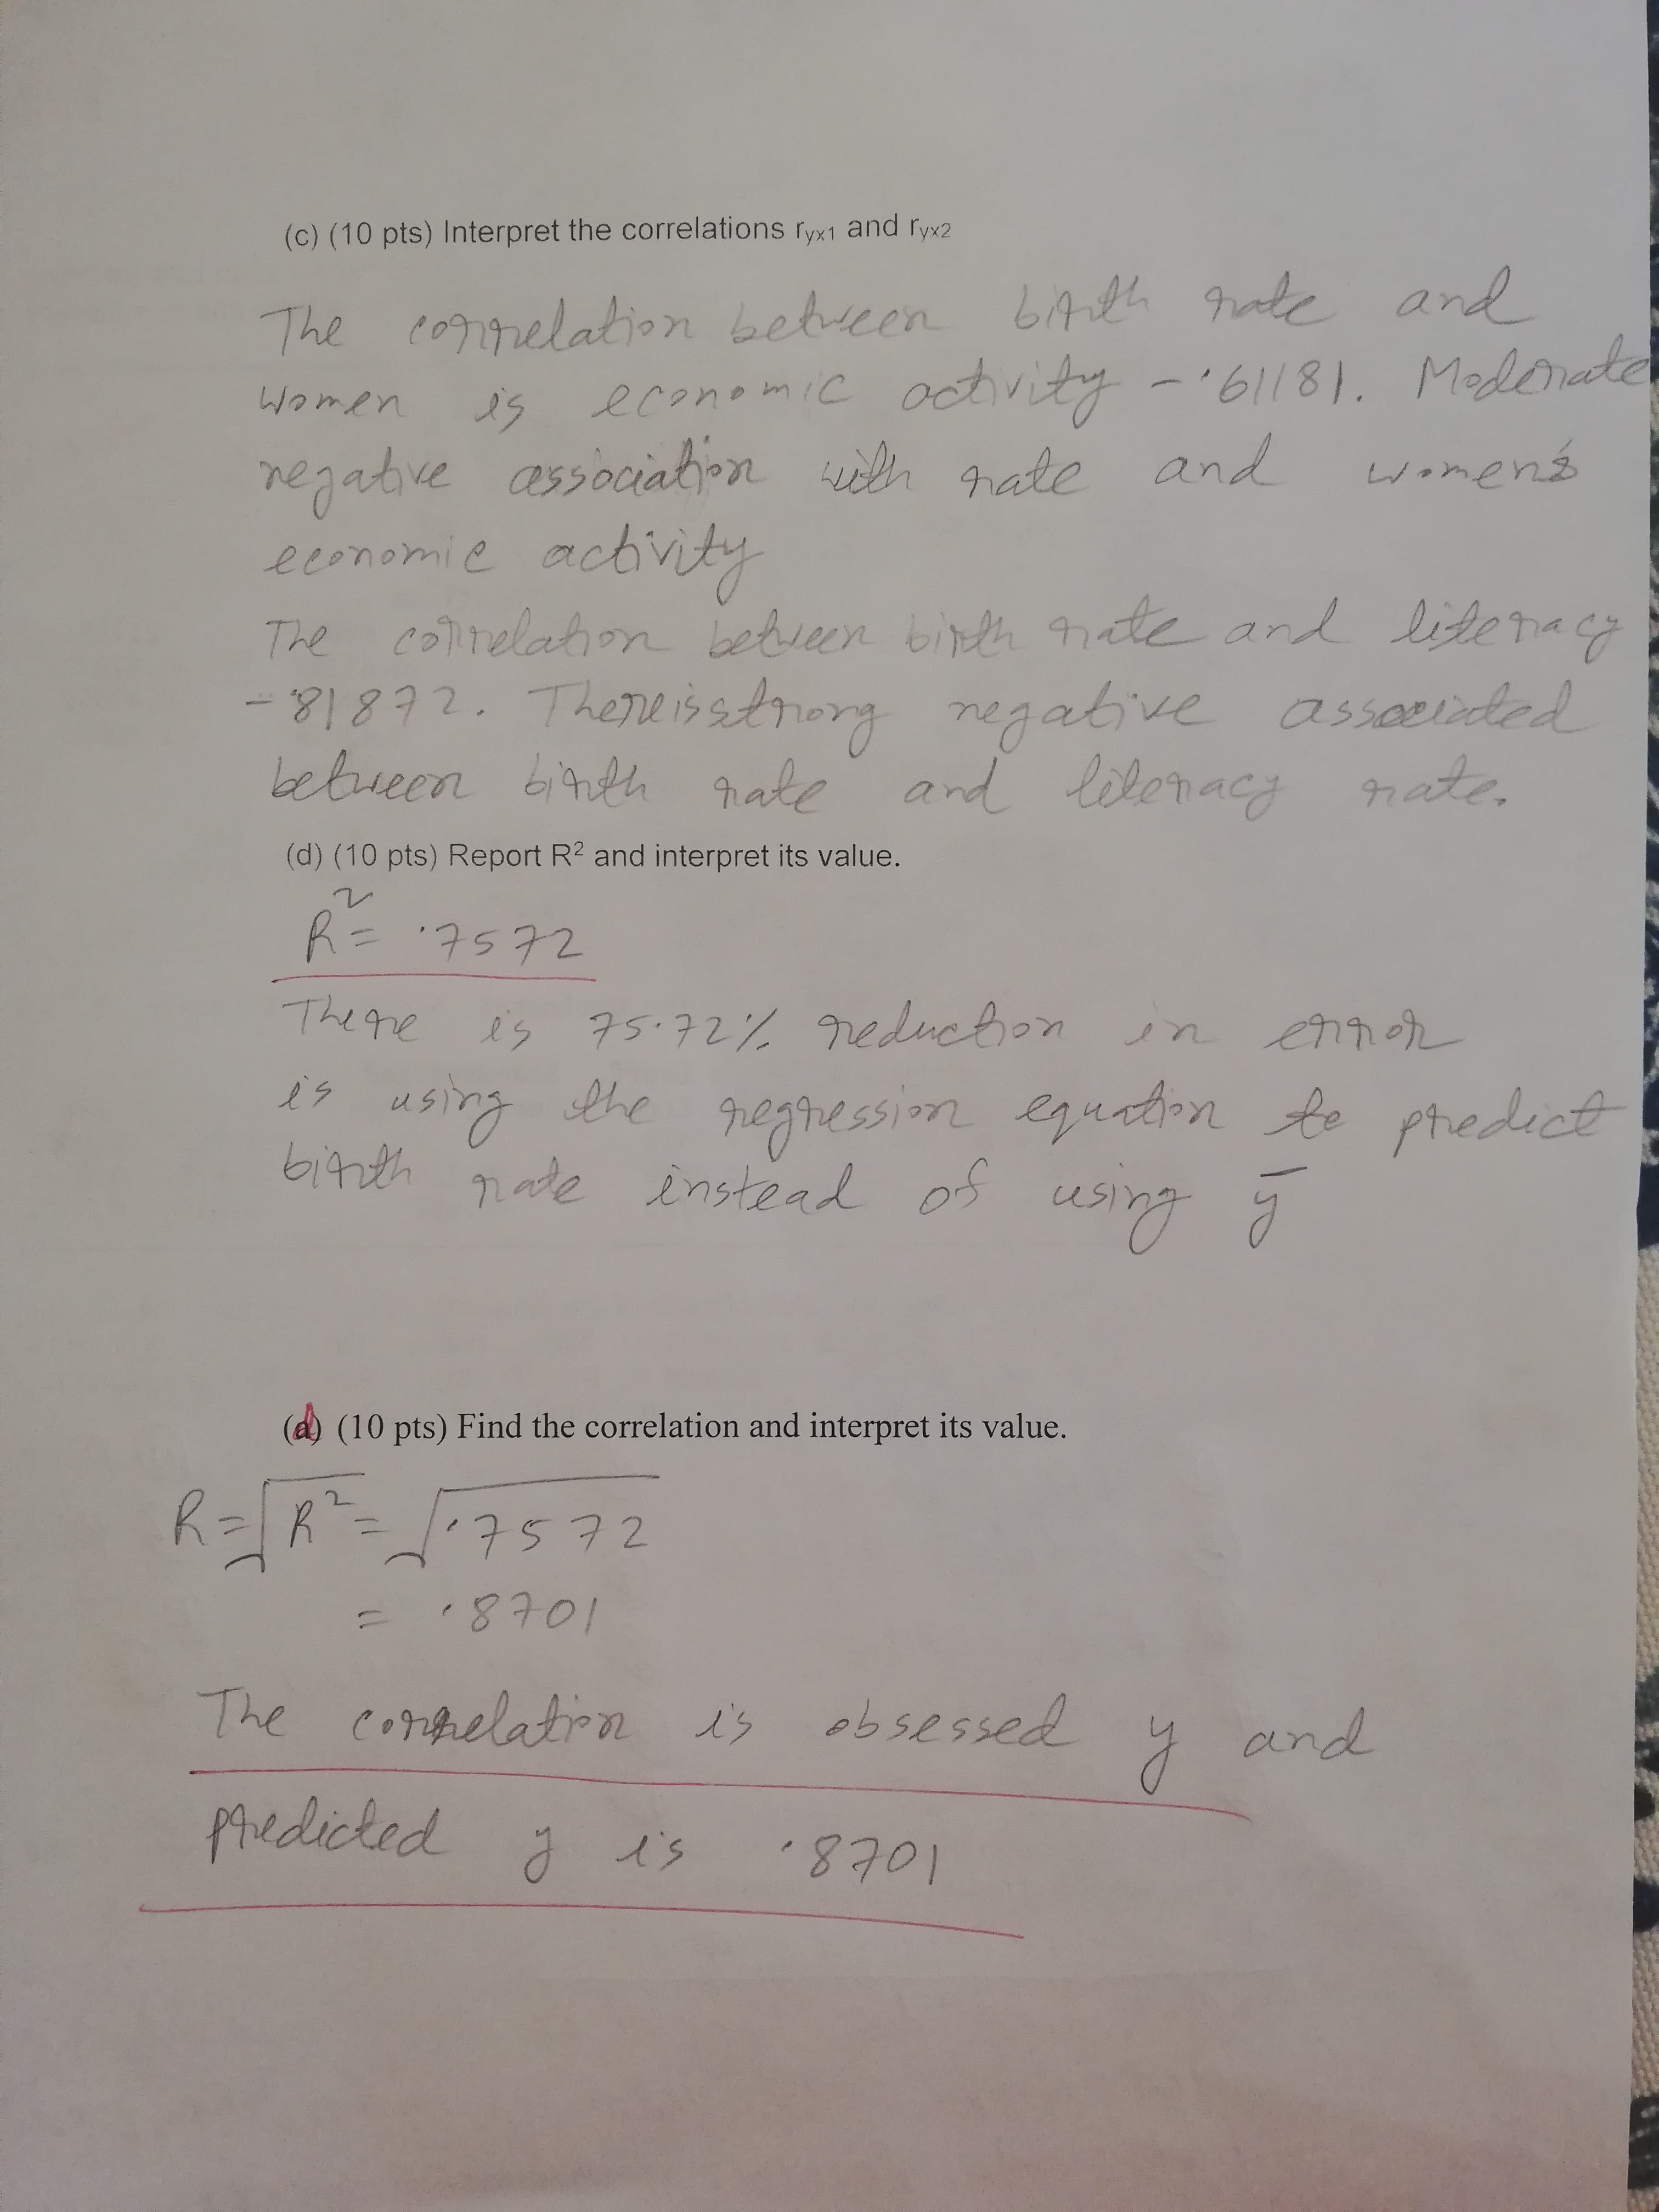 (c) (10 pts) Interpret the correlations ryx1 and ryx2
The correlation between birth rate and
women is economic activity -.61181. Moderate
negative association with rate and women's
economic activity
The correlation between birth rate and literacy
-.81872. There is strong negative associated
between birth rate and literacy rate.
(d) (10 pts) Report R² and interpret its value.
R² = .7572
There is 75.72% reduction in error
is using the regression equation to predict
birth rate instead of using ȳ
(d) (10 pts) Find the correlation and interpret its value.
R = √R² = √.7572
= .8701
The correlation is obsessed y and
predicted y is .8701